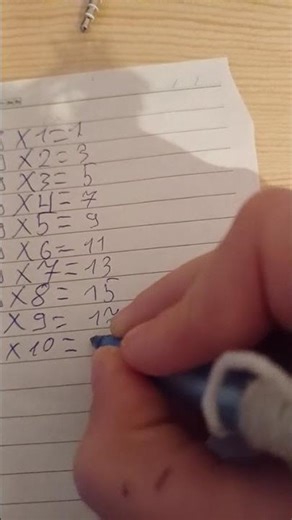 X1=1
X2=3
X3=5
X4=7
X5=9
X6=11
X7=13
X8=15
X9=17
X10=